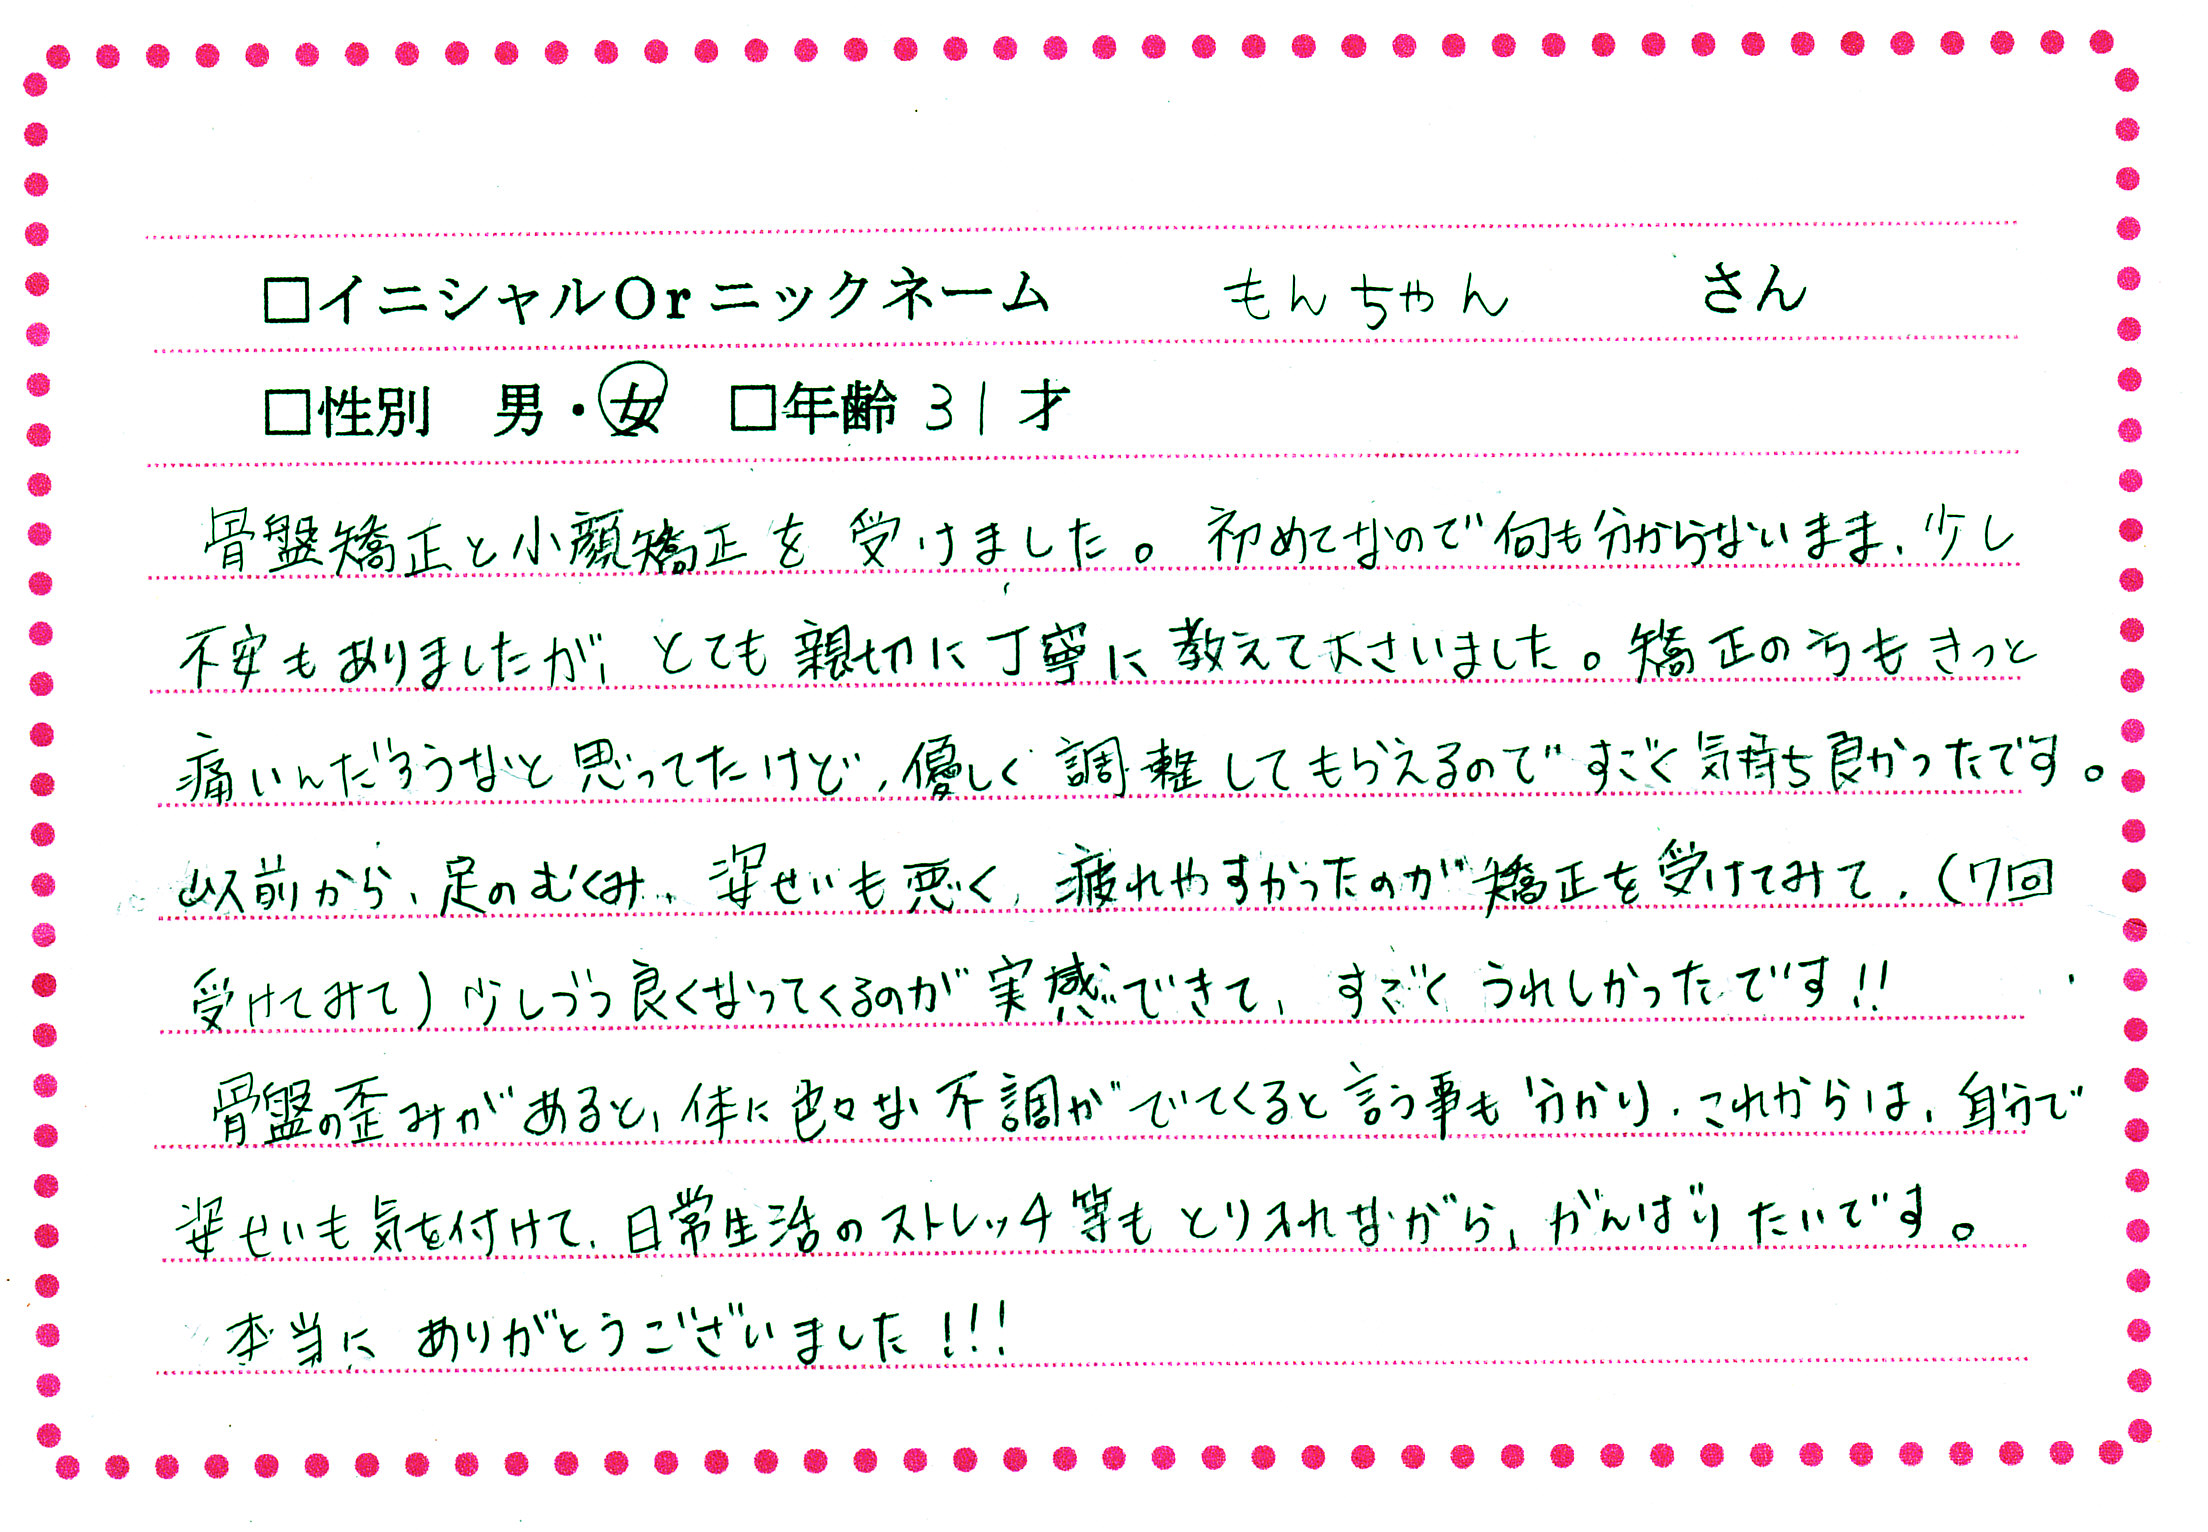 □イニシャルOrニックネーム もんちゃん さん
□性別 男・女 □年齢 31才
骨盤矯正と小顔矯正を受けました。初めてなので何も分からないまま、少し
不安もありましたが、とても親切に丁寧に教えて下さいました。矯正の方もきっと
痛いんだろうなと思ってたけど、優しく調整してもらえるのですごく気持ち良かったです。
以前から、足のむくみ、姿せいも悪く、疲れやすかったのが矯正を受けてみて、(7回
受けてみて)少しづつ良くなってくるのが実感できて、すごくうれしかったです!!
骨盤の歪みがあると、体に色々な不調がでてくると言う事も分かり、これからは、自分で
姿せいも気を付けて、日常生活のストレッチ等もとり入れながら、がんばりたいです。
本当にありがとうございました!!!